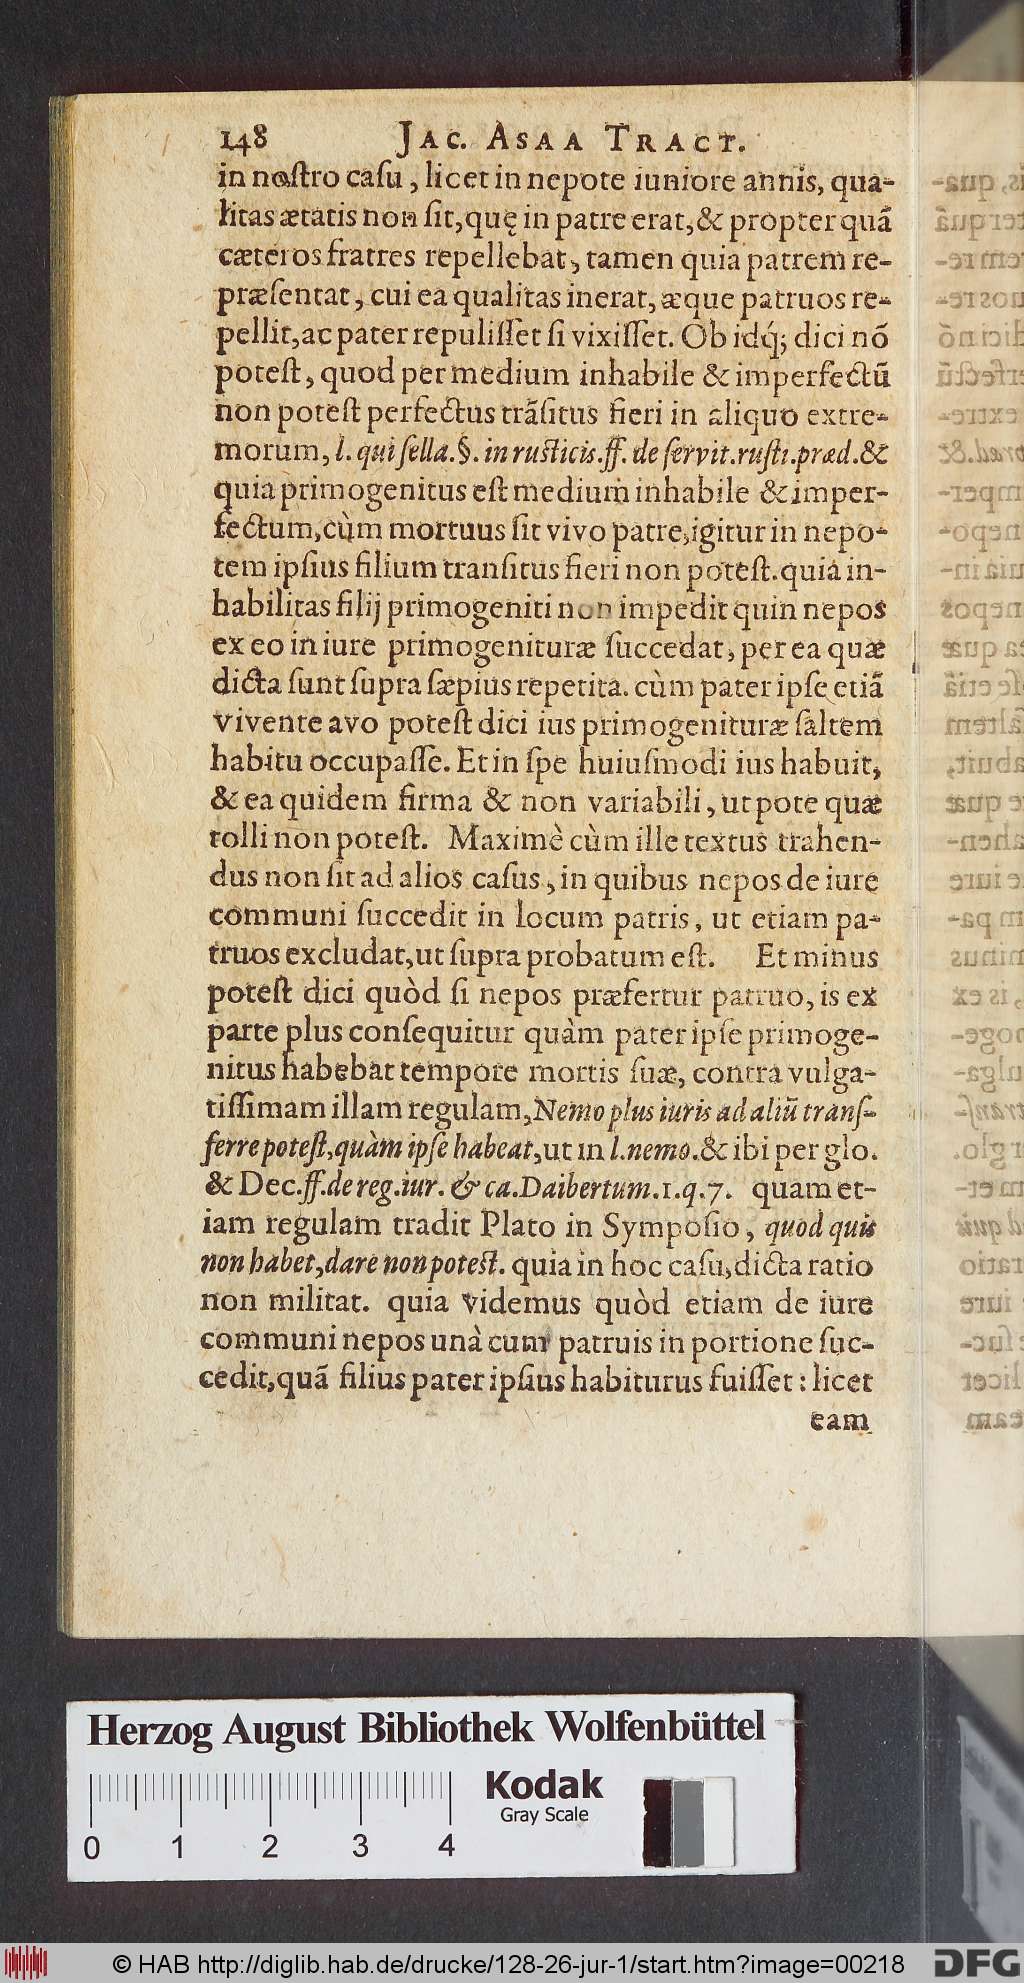 148 JAC. ASAA TRACT.
in noſtro caſu, licet in nepote iuniore annis, qua-
litas ætatis non ſit, quę in patre erat, & propter quã
cæteros fratres repellebat, tamen quia patrem re-
præſentat, cui ea qualitas inerat, æque patruos re-
pellit, ac pater repuliſſet ſi vixiſſet. Ob idq́; dici nõ
poteſt, quod per medium inhabile & imperfectũ
non poteſt perfectus trãſitus fieri in aliquo extre-
morum, l. qui ſella. §. in ruſticis. ff. de ſervit. ruſti. præd. &
quia primogenitus eſt medium inhabile & imper-
fectum, cùm mortuus ſit vivo patre, igitur in nepo-
tem ipſius filium tranſitus fieri non poteſt. quia in-
habilitas filij primogeniti non impedit quin nepos
ex eo in iure primogenituræ ſuccedat, per ea quæ
dicta ſunt ſupra ſæpius repetita. cùm pater ipſe etiã
vivente avo poteſt dici ius primogenituræ ſaltem
habitu occupaſſe. Et in ſpe huiuſmodi ius habuit,
& ea quidem firma & non variabili, ut pote quæ
tolli non poteſt. Maximè cùm ille textus trahen-
dus non ſit ad alios caſus, in quibus nepos de iure
communi ſuccedit in locum patris, ut etiam pa-
truos excludat, ut ſupra probatum eſt. Et minus
poteſt dici quòd ſi nepos præfertur patruo, is ex
parte plus conſequitur quàm pater ipſe primoge-
nitus habebat tempore mortis ſuæ, contra vulga-
tiſſimam illam regulam, Nemo plus iuris ad aliũ tranſ-
ferre poteſt, quàm ipſe habeat, ut in l. nemo. & ibi per glo.
& Dec. ff. de reg. iur. & ca. Daibertum. 1. q. 7. quam et-
iam regulam tradit Plato in Sympoſio, quod quis
non habet, dare non poteſt. quia in hoc caſu, dicta ratio
non militat. quia videmus quòd etiam de iure
communi nepos unà cum patruis in portione ſuc-
cedit, quã filius pater ipſius habiturus fuiſſet: licet
eam
Herzog August Bibliothek Wolfenbüttel
Kodak
Gray Scale
0 1 2 3 4
© HAB http://diglib.hab.de/drucke/128-26-jur-1/start.htm?image=00218
DFG